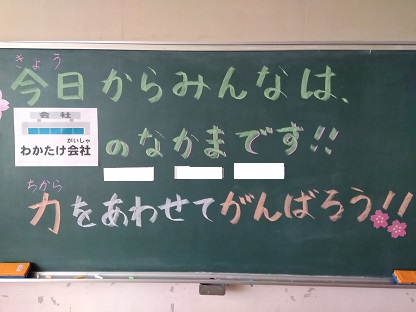 きょう
今日からみんなは、
会社
がいしゃ
わかたけ会社
のなかまです!!
ちから
力をあわせてがんばろう!!